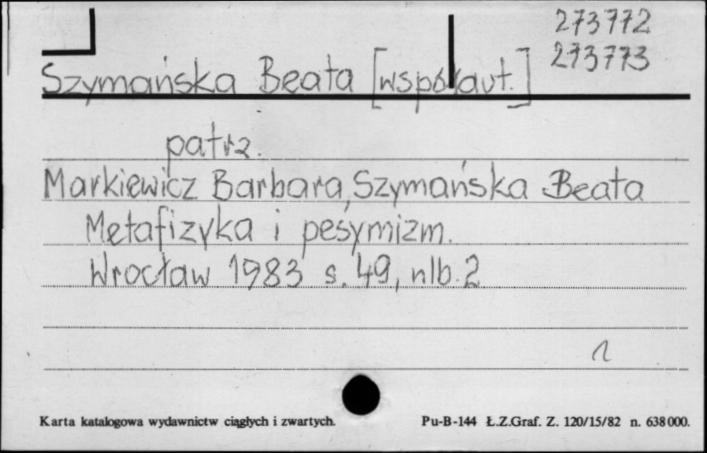 273772
273773
Szymańska Beata [współaut.]
patrz.
Markiewicz Barbara, Szymańska Beata
Metafizyka i pesymizm.
Wrocław 1983 s. 49, nlb. 2
1
Karta katalogowa wydawnictw ciągłych i zwartych. Pu-B-144 Ł.Z.Graf. Z. 120/15/82 n. 638000.